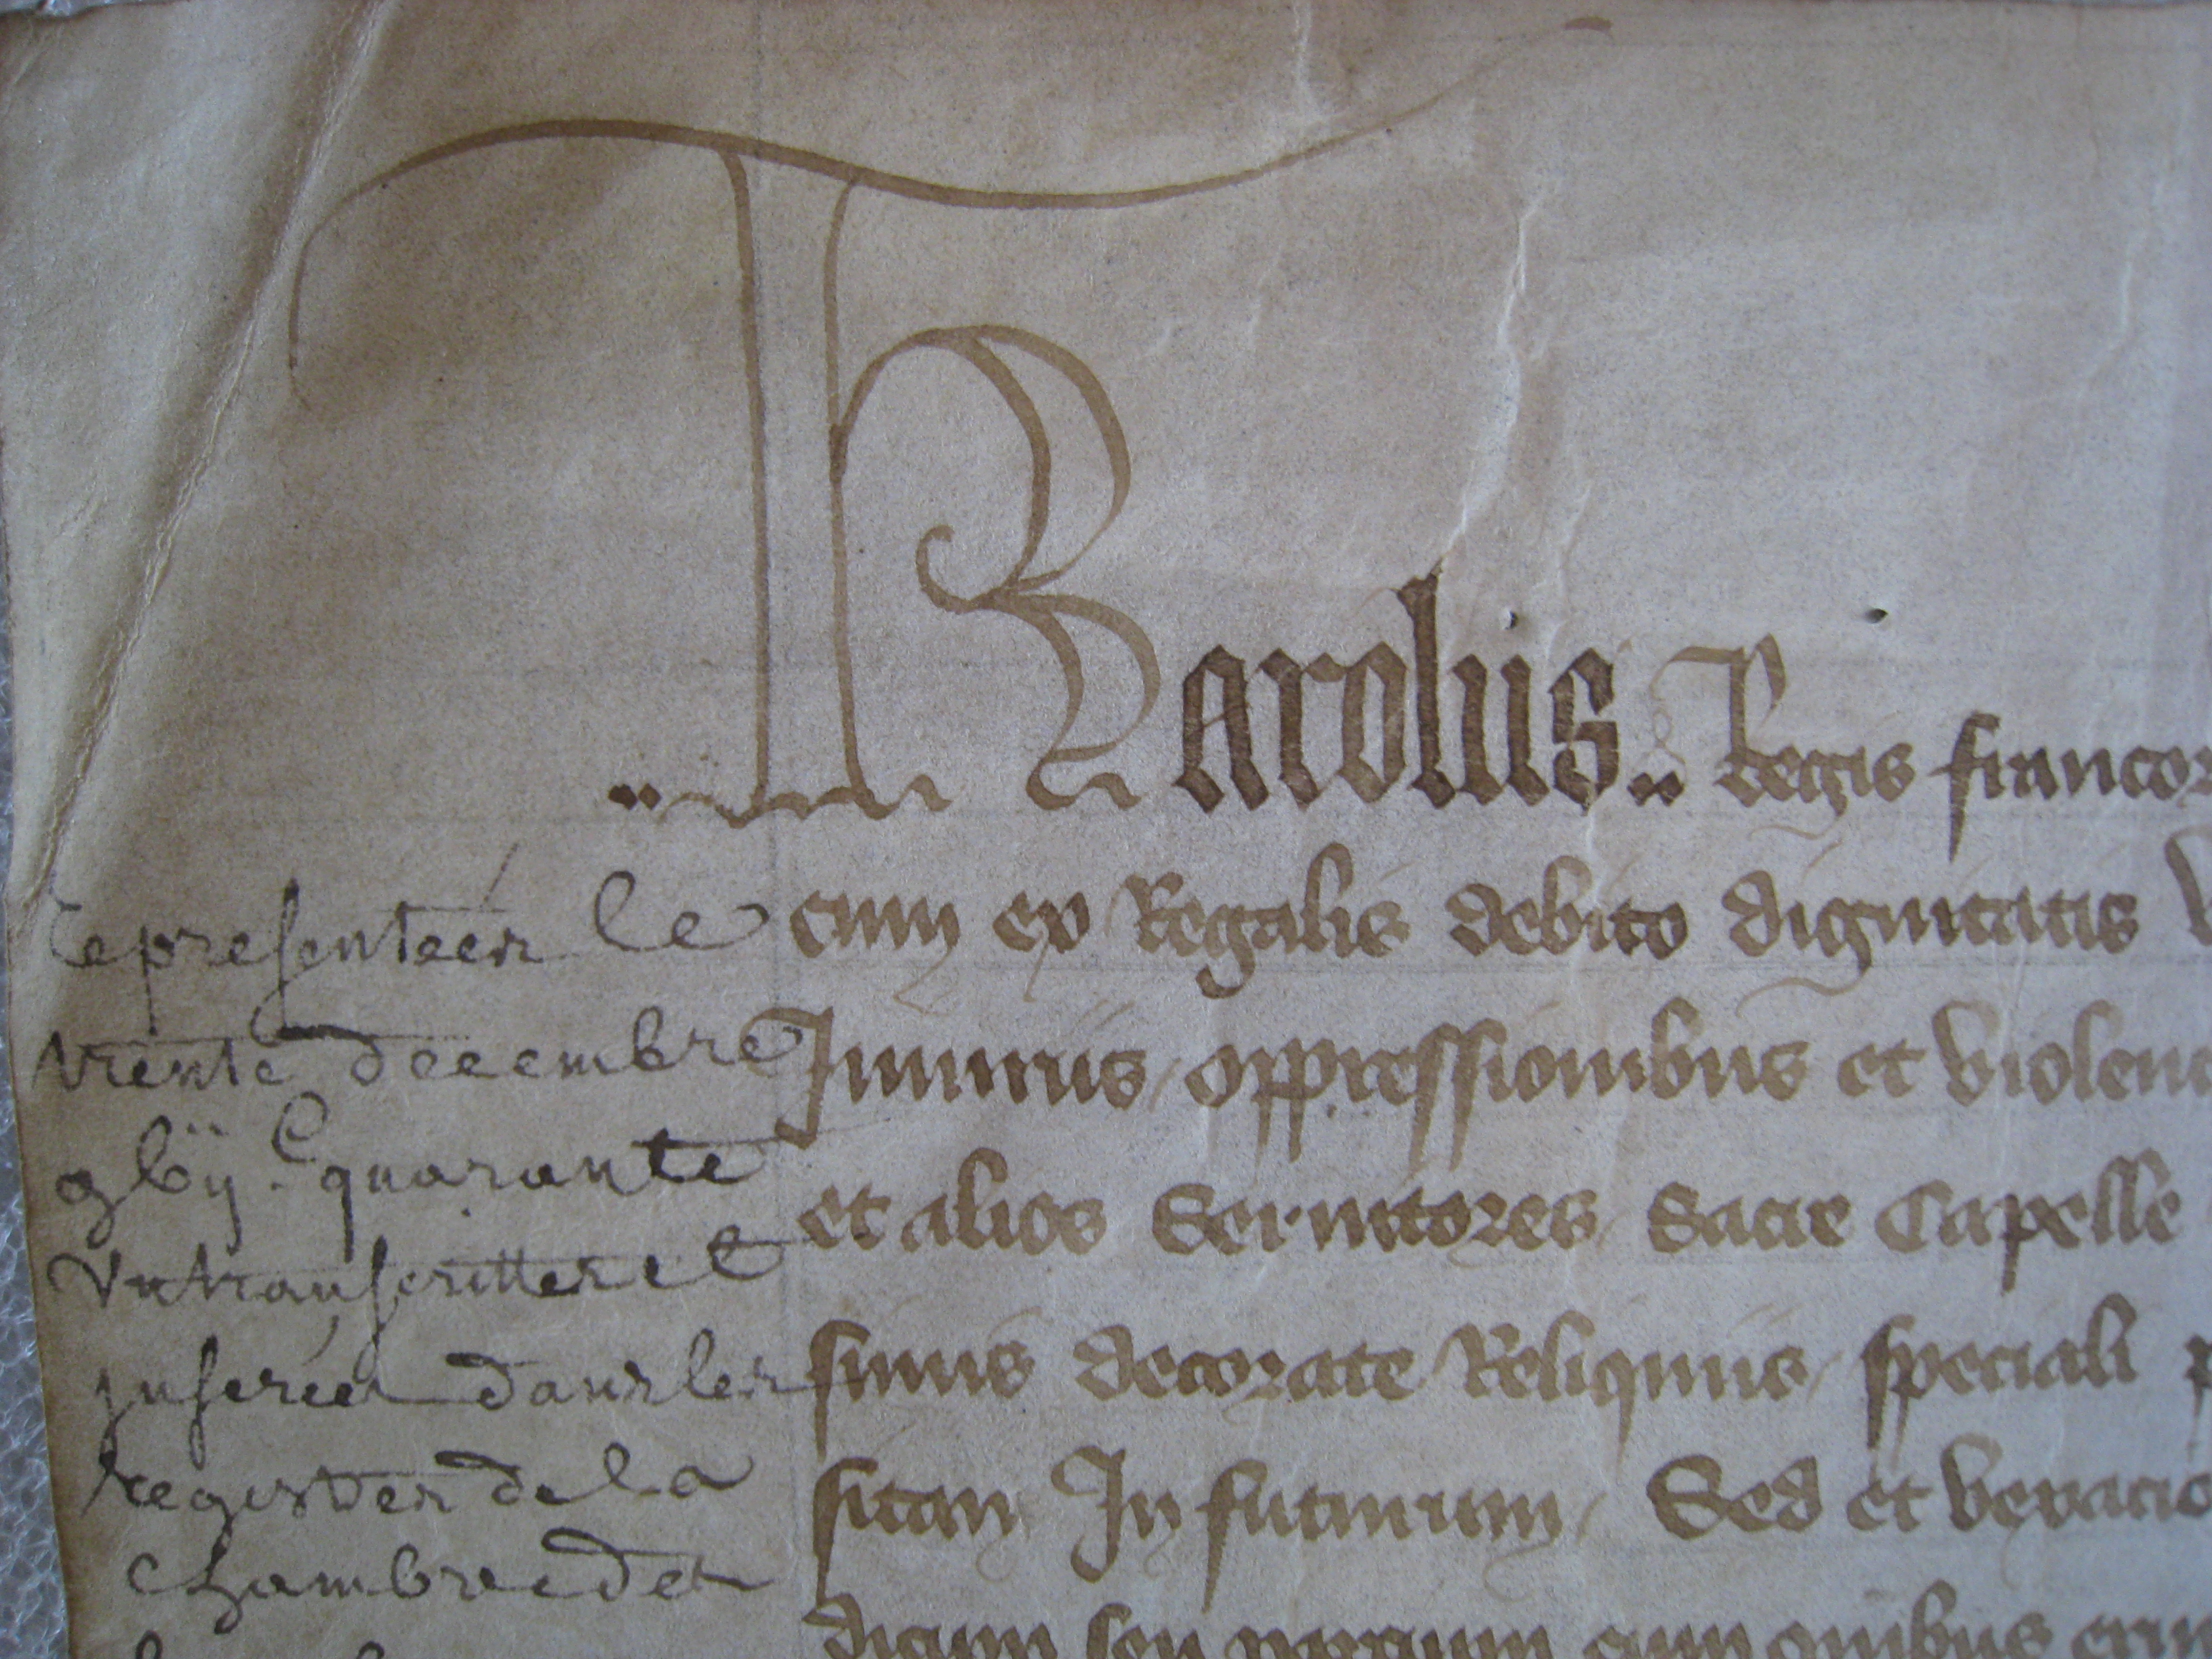 Karolus.. Regis francor
cum ex Regalis debito dignitatis
Iniuriis oppressionibus et violenc
et alios Servitores Sacre Capelle
simis decorate Reliquiis speciali
sitam In futurum Sed et
dictum seu omnibus
representées le
trente decembre
gbij.C quarante
un transcrittes et
inserées dans les
registres de la
chambre des